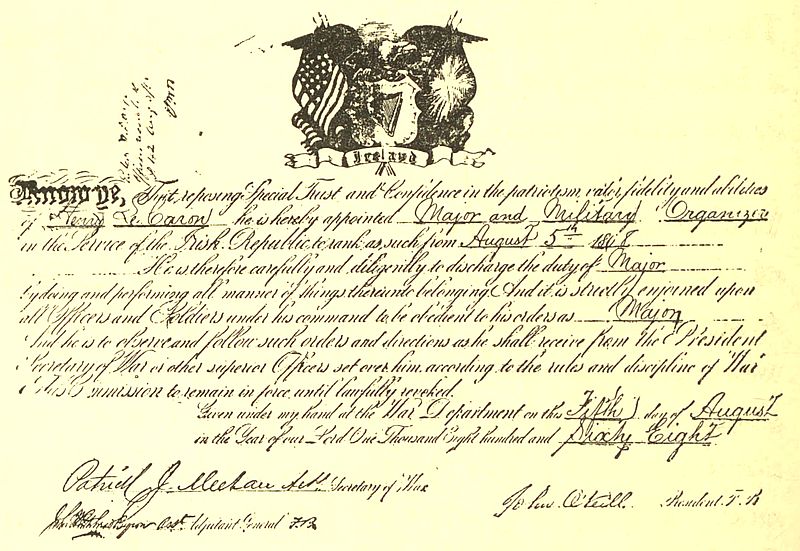 Ireland
Know ye, That, reposing Special Trust and Confidence in the patriotism, valor, fidelity and abilities
of Henri Le Caron he is hereby appointed Major and Military Organizer
in the Service of the Irish Republic to rank as such from August 5th 1868
He is therefore carefully and diligently to discharge the duty of Major
by doing and performing all manner of things thereunto belonging. And it is strictly enjoined upon
all Officers and Soldiers under his command to be obedient to his orders as Major
And he is to observe and follow such orders and directions as he shall receive from the President
Secretary of War or other superior Officers set over him, according to the rules and discipline of War
This Commission to remain in force, until lawfully revoked.
Given under my hand at the War Department on this Fifth day of August
in the Year of our Lord One Thousand Eight hundred and Sixty Eight
Patrick J. Meehan Secretary of War
John O'Neill. President. F. B
Adjutant General F.B